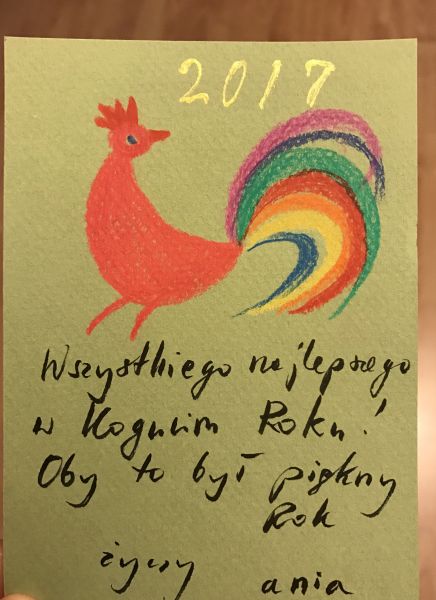 2017
Wszystkiego najlepszego
w Kogucim Roku!
Oby to był piękny
Rok
życzy ania